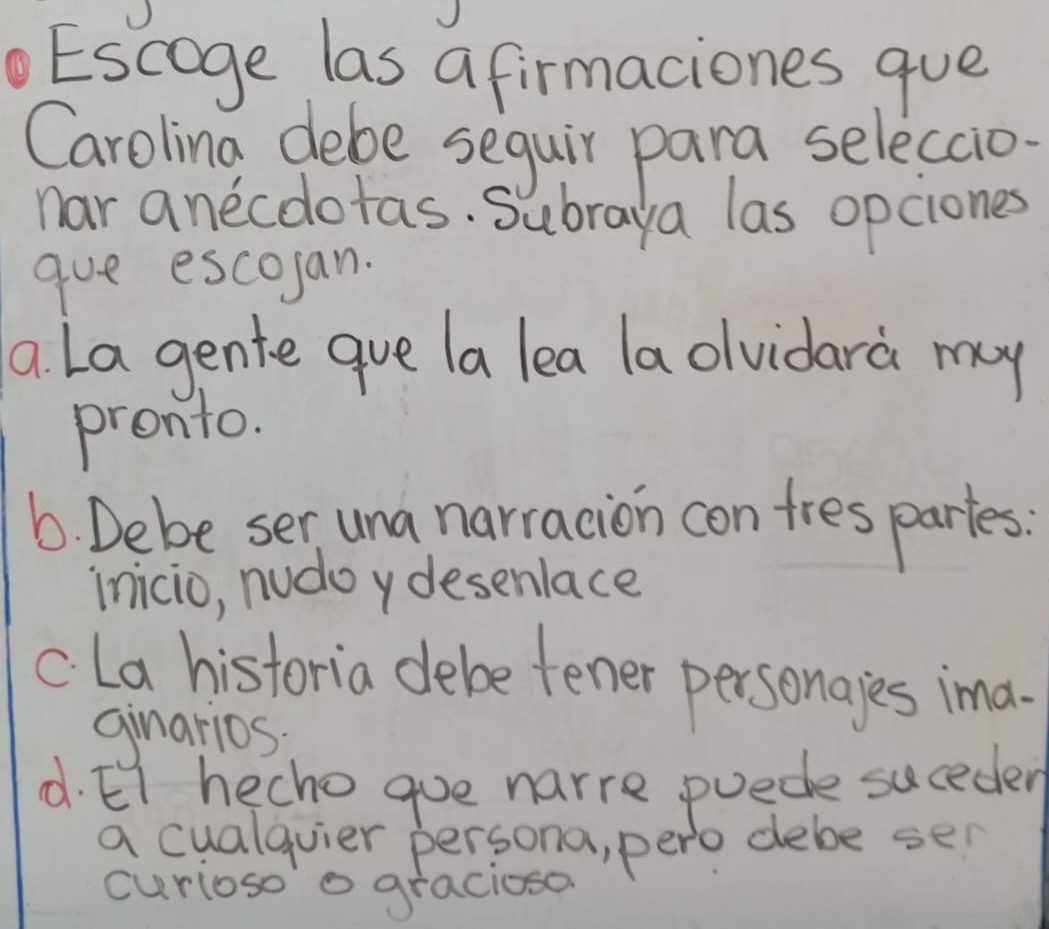 Escoge las afirmaciones que
Carolina debe seguir para seleccio-
nar anécdotas. Subraya las opciones
que escojan.
a. La gente que la lea la olvidará muy
pronto.
b. Debe ser una narración con tres partes:
inicio, nudo y desenlace
c. La historia debe tener personajes ima-
ginarios.
d. El hecho que narre puede suceder
a cualquier persona, pero debe ser
curioso o gracioso.